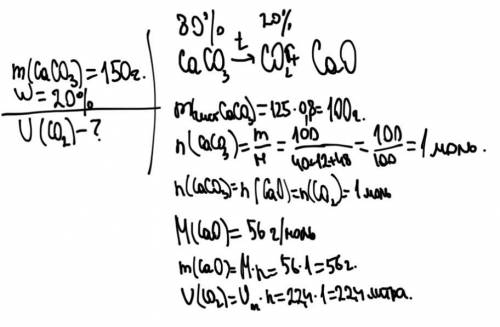 m(CaCO₃)=150г.
W=20%
U(CO₂)-?
80% 20%
t
CaCO₃ → CO₂ + CaO
m чист(CaCO₃)=125·0,8=100г.
n(CaCO₃)=m/M=100/40+12+48=100/100=1 моль.
n(CaCO₃)=n(CaO)=n(CO₂)=1 моль
M(CaO)=56 г/моль
m(CaO)=M·n=56·1=56г.
U(CO₂)=Uₘ·n=22,4·1=22,4 литра.